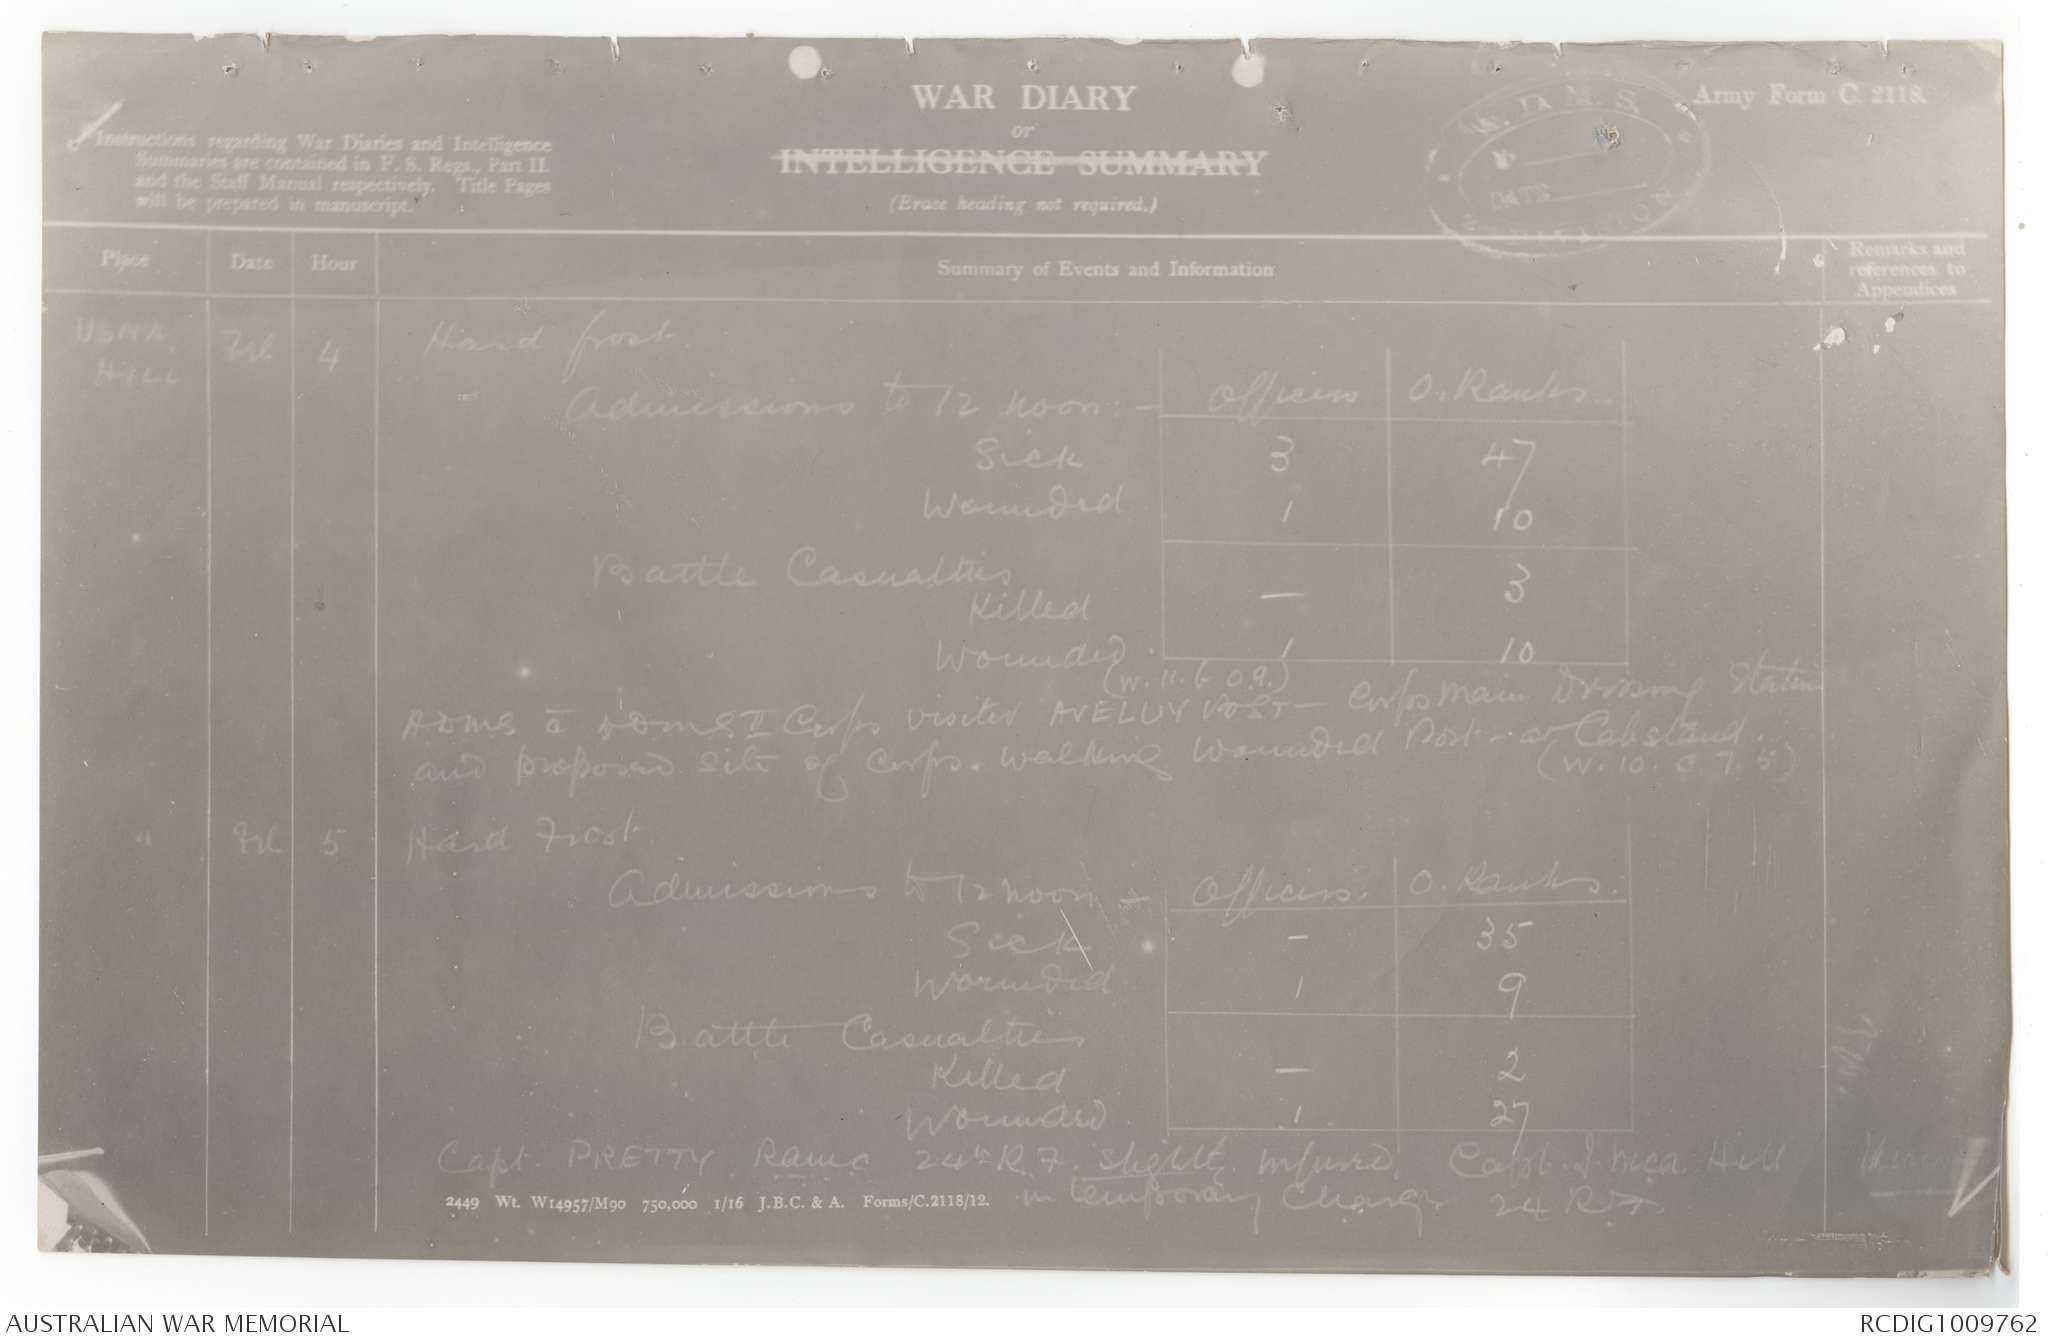 WAR DIARY
or
INTELLIGENCE SUMMARY
(Erase heading not required.)
Army Form C. 2118.
Instructions regarding War Diaries and Intelligence
Summaries are contained in F. S. Regs., Part II.
and the Staff Manual respectively. Title Pages
will be prepared in manuscript.
A.D.M.S.
No
DATE
Place Date Hour Summary of Events and Information Remarks and references to Appendices
USNA HILL Feb 4 Hard frost.
Admissions to 12 noon:- Officers O. Ranks.
Sick 3 47
Wounded 1 10
Battle Casualties
Killed — 3
Wounded 1 10
(W. 11. b 0.9.)
ADMS a DDMS II Corps visited AVELUY POST - Corps Main Dressing Station
and proposed site of Corps. Walking Wounded Post - at Cabstand.
(W. 10. c. 7. 5)
" Feb 5 Hard Frost
Admissions to 12 noon - Officers. O. Ranks.
Sick - 35
Wounded 1 9
Battle Casualties
Killed — 2
Wounded 1 27
Capt. PRETTY RAMC 24th R.F. slightly injured, Capt. J. McA. Hill
in temporary charge 24 R.F.
2449 Wt. W14957/M90 750,000 1/16 J.B.C. & A. Forms/C.2118/12.
AUSTRALIAN WAR MEMORIAL
RCDIG1009762